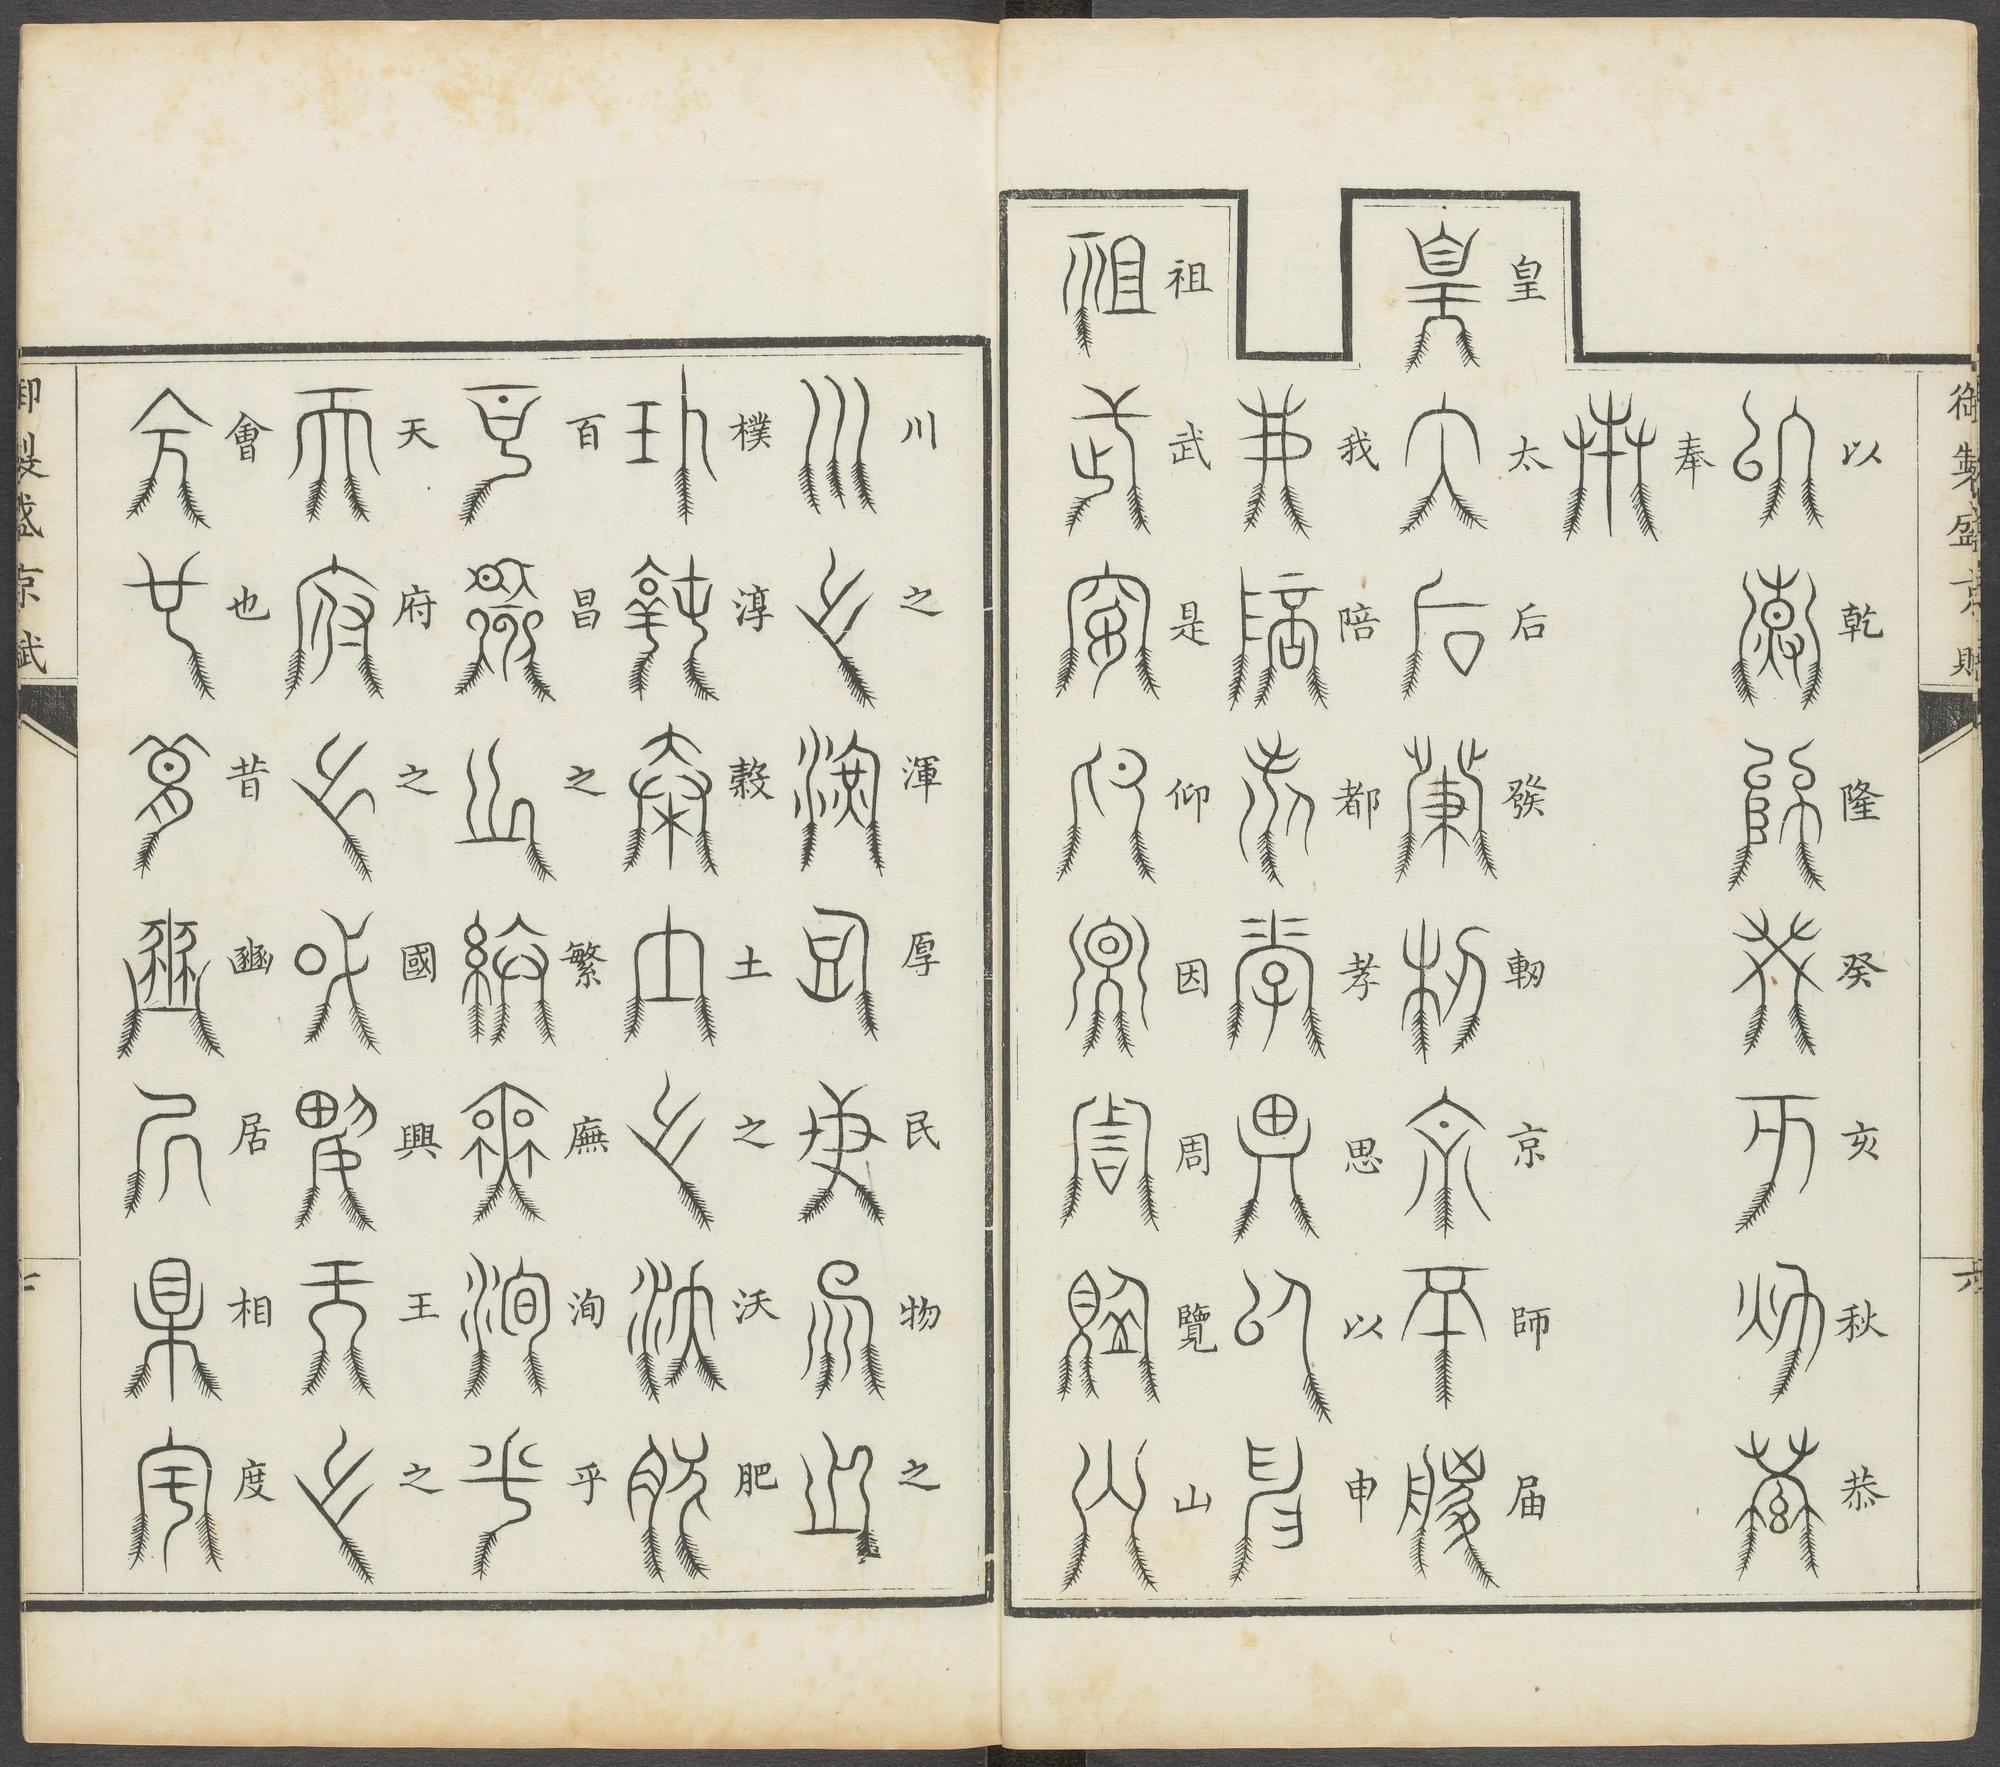 御製盛京賦 六
以乾隆癸亥秋恭
奉
皇太后發軔京師屆
我陪都孝思以申
祖武是仰因周覽山
川之渾厚民物之
樸淳穀土之沃肥
百昌之繁廡洵乎
天府之國興王之
會也昔豳居相度
御製盛京賦 七